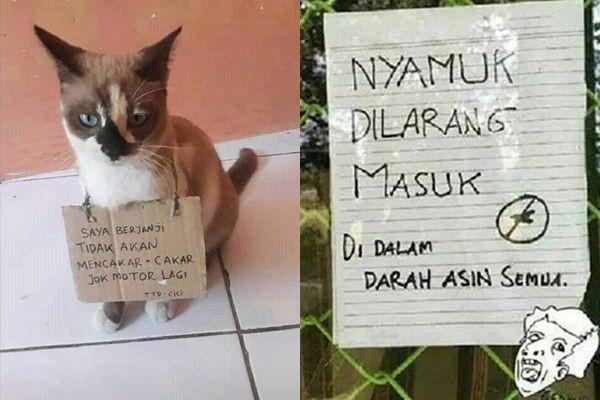 SAYA BERJANJI
TIDAK AKAN
MENCAKAR-CAKAR
JOK MOTOR LAGI
TTD: CICI
NYAMUK
DILARANG
MASUK
DI DALAM
DARAH ASIN SEMUA.